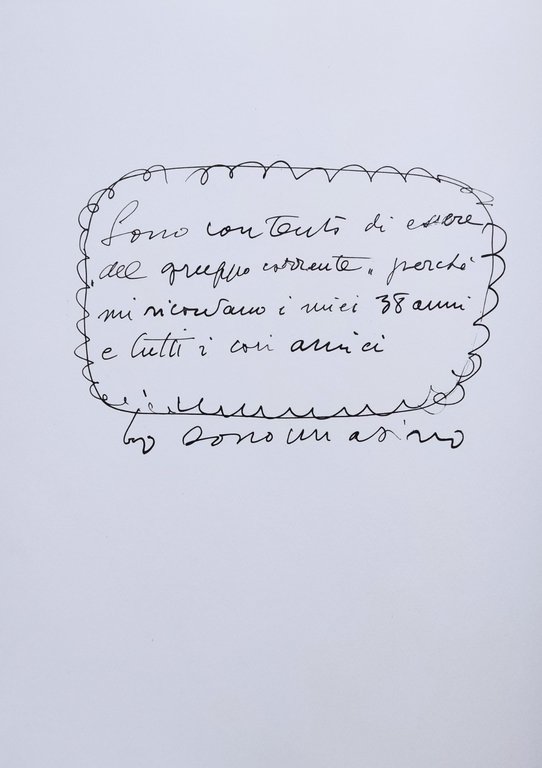 Sono contento di essere
"del gruppo corrente" perché
mi ricordano i miei 38 anni
e tutti i cari amici
sono un asino